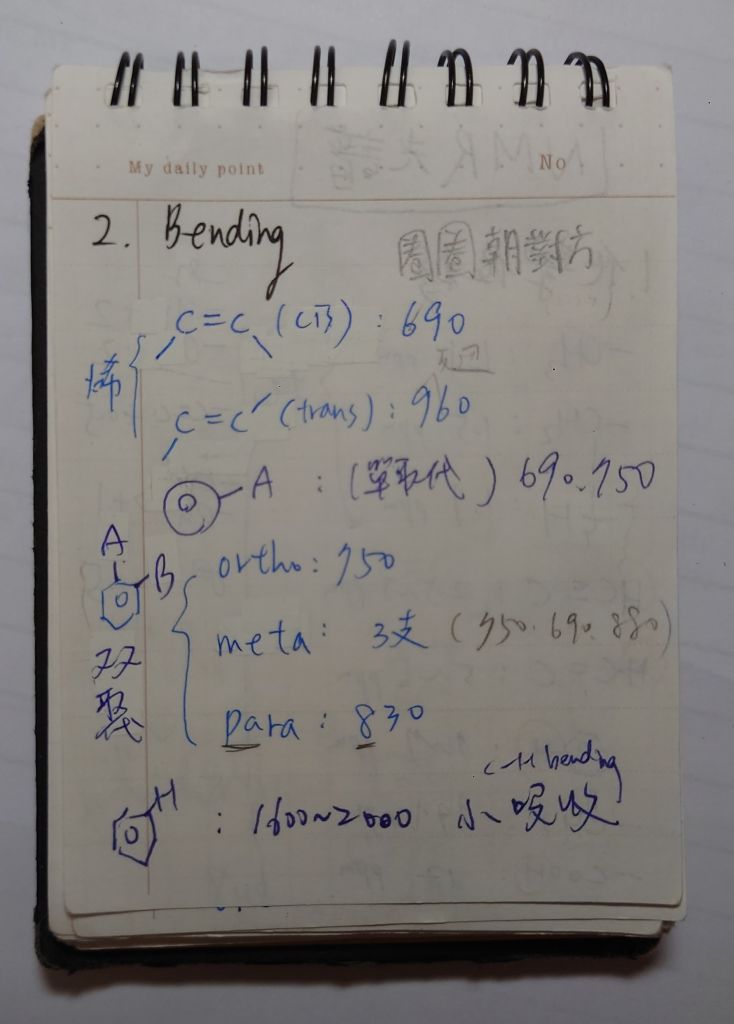 My daily point No
2. Bending
圈圈朝對方
烯
C=C (cis) : 690
C=C (trans) : 960
A : (單取代) 690.750
A
B
双取代
ortho : 750
meta : 3支 (750.690.880)
para : 830
C-H bending
H : 1600~2000 小吸收